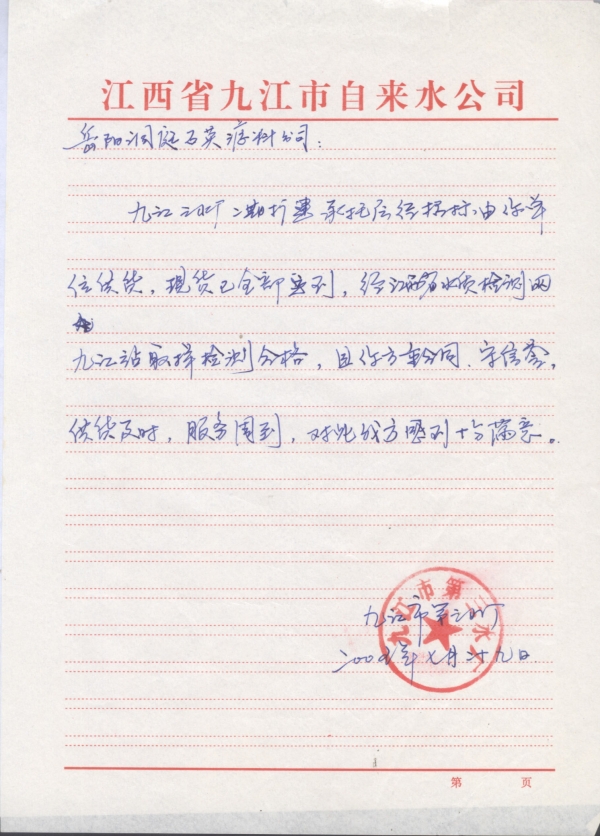 江西省九江市自来水公司
岳阳洞庭石英滤料公司:
九江三水厂二期扩建承托层经招标由你单
位供货,现货已全部运到,经江西省水质检测网
九江站取样检测合格,且你方重合同、守信誉,
供货及时,服务周到,对此我方感到十分满意。
九江市第三水厂
九江市第三水厂
七月二十九日
第 页